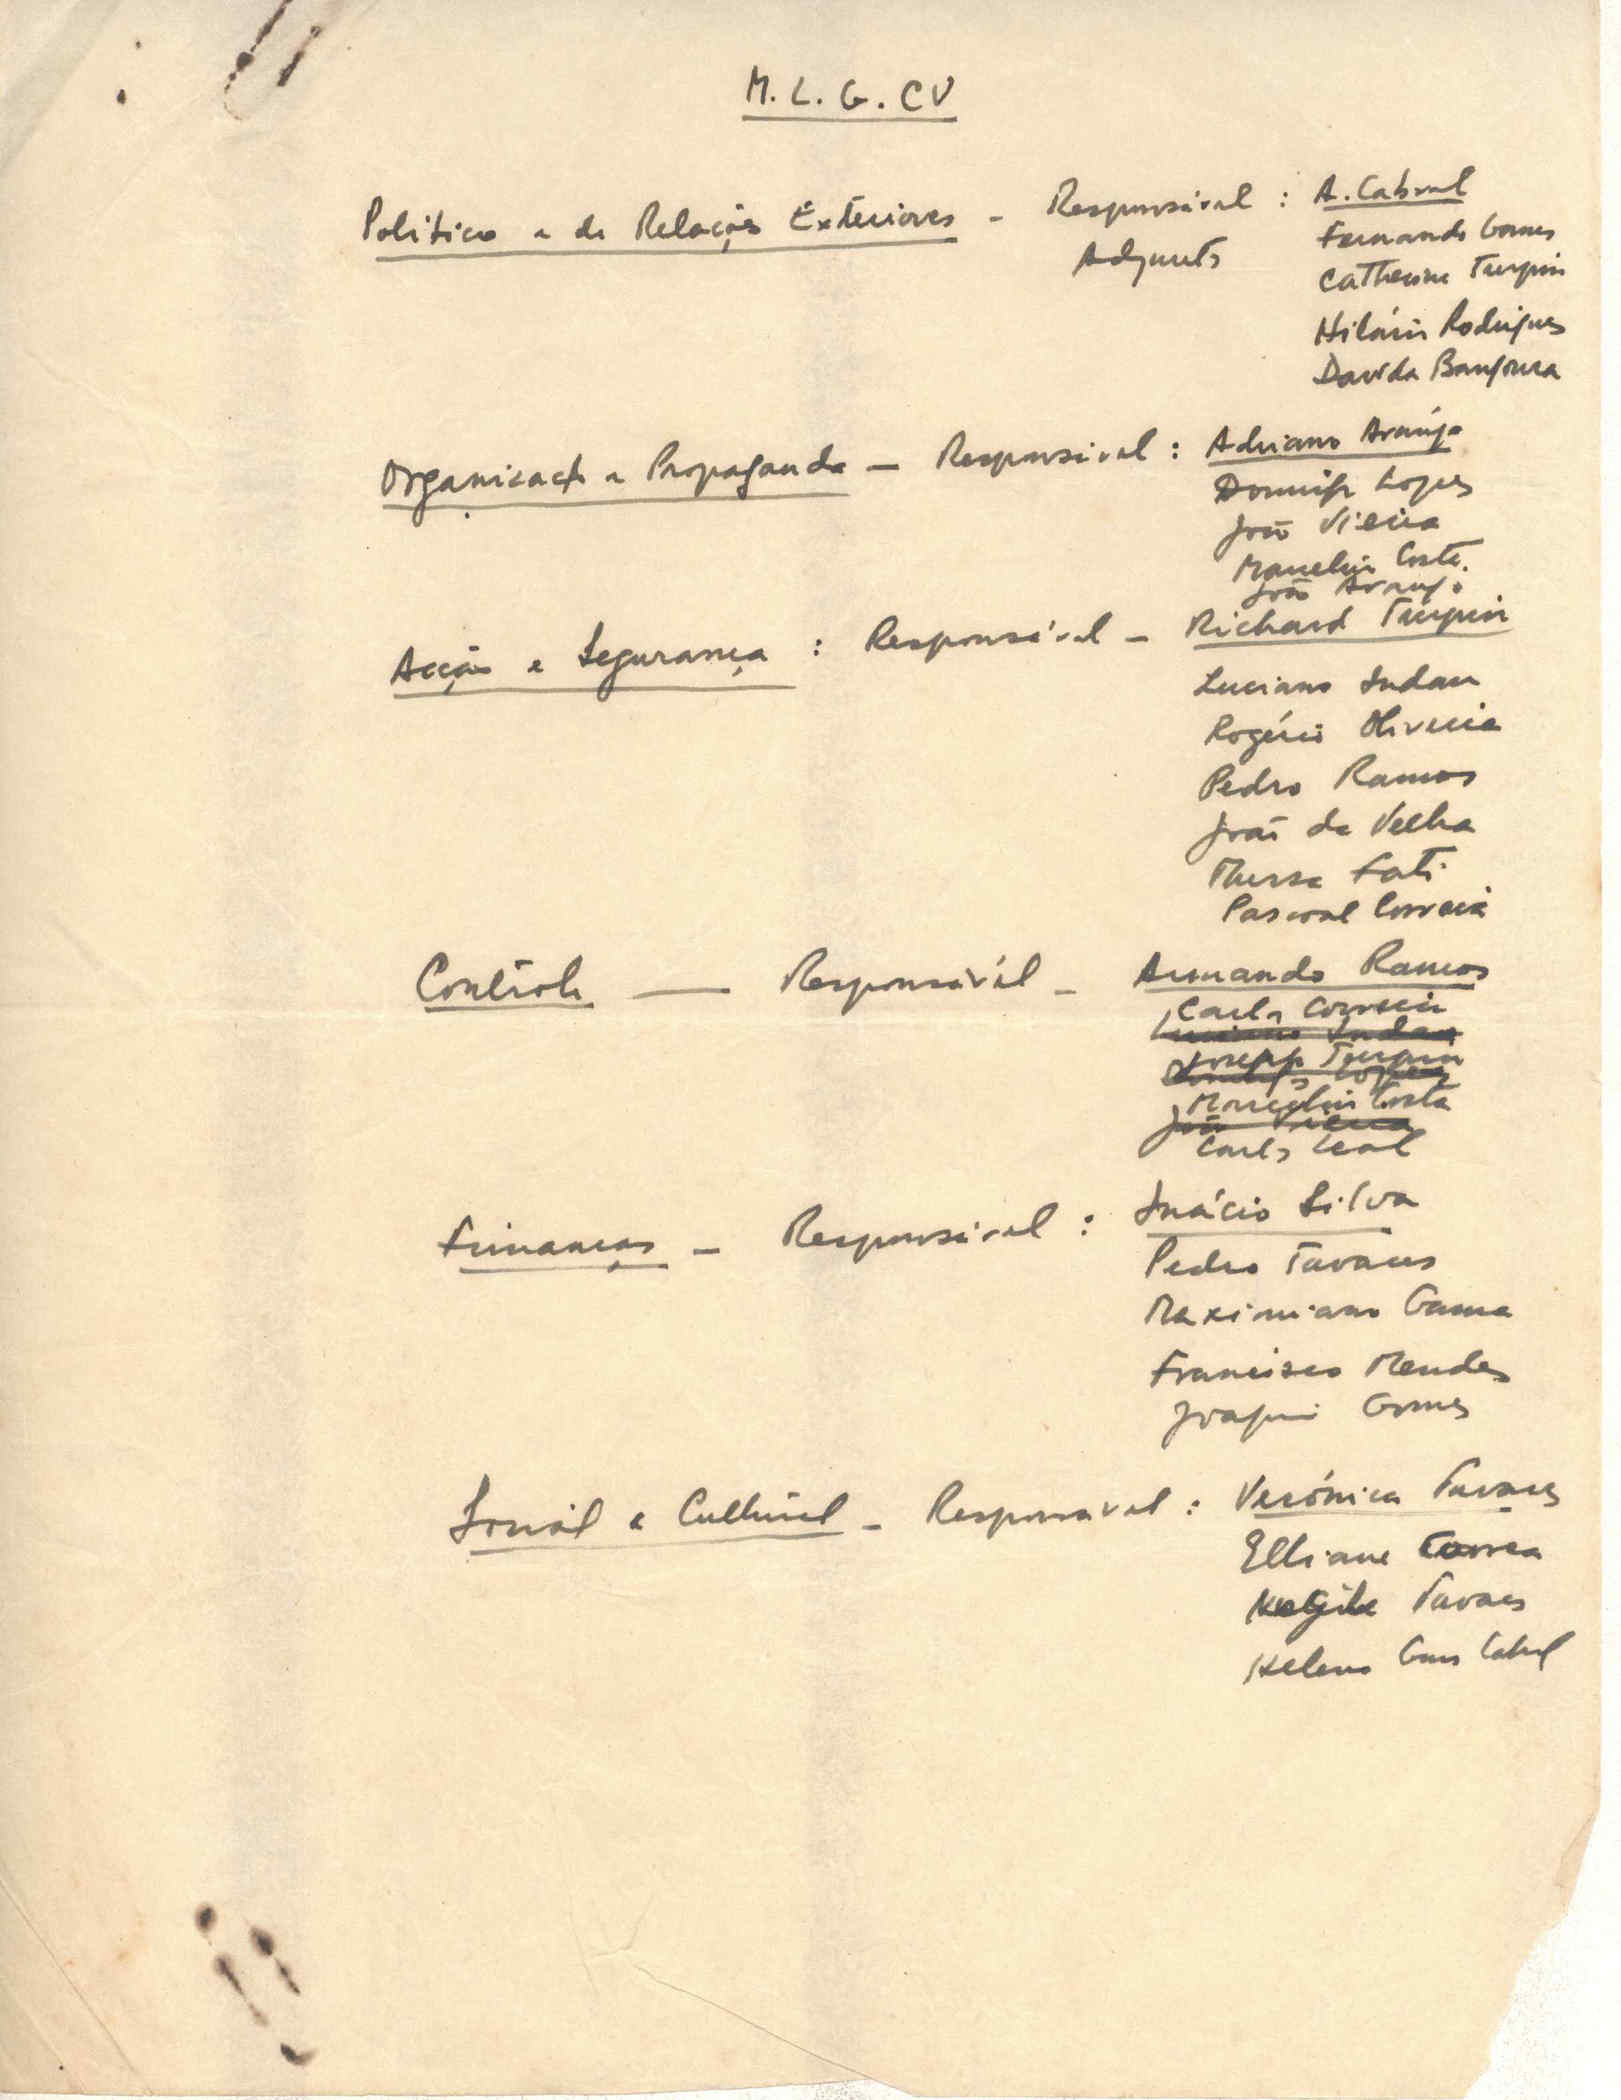 M. L. G. CV
Política e de Relações Exteriores - Responsável : A. Cabral
Adjuntos Fernando Gomes
Catherine Turpin
Hilário Rodrigues
Davida Bangoura
Organização e Propaganda - Responsável : Adriano Araújo
Domingos Lopes
João Vieira
Marcelino Costa.
João Araujo
Acção e Segurança : Responsável - Richard Turpin
Luciano Indau
Rogério Oliveira
Pedro Ramos
João da Velha
Mussa Fati
Pascoal Correia
Controle - Responsável - Armando Ramos
Carlos Correia
Luciano Indau
Joseph Turpin
Domingos Lopes
Marcelino Costa
João Vieira
Carlos Leal
Finanças - Responsável : Inácio Silva
Pedro Tavares
Maximiano Gama
Francisco Mendes
Joaquim Gomes
Social e Cultural - Responsável : Verónica Tavares
Elliane Correa
Tavares
Helena Cabral